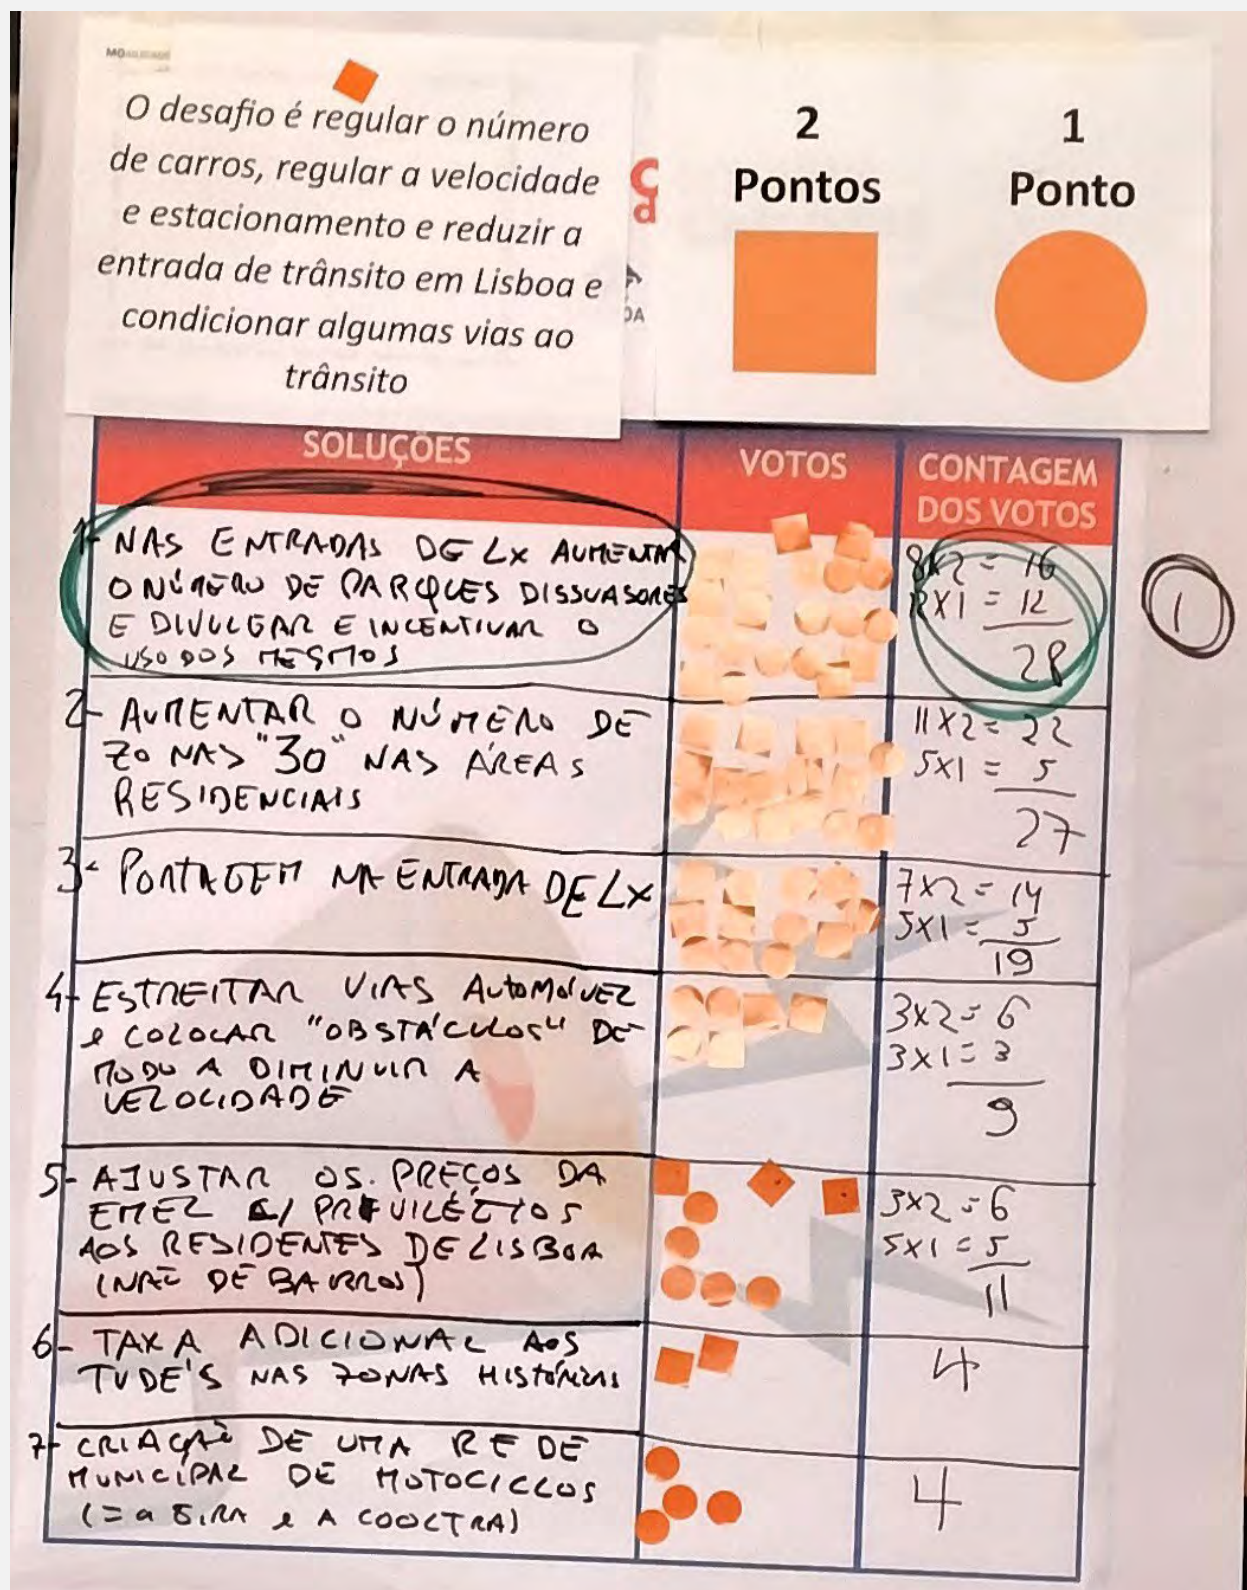 MOBILIDADE
O desafio é regular o número
de carros, regular a velocidade
e estacionamento e reduzir a
entrada de trânsito em Lisboa e
condicionar algumas vias ao
trânsito
2
Pontos
1
Ponto
SOLUÇÕES
VOTOS
CONTAGEM
DOS VOTOS
1- NAS ENTRADAS DE LX AUMENTAR
O NÚMERO DE PARQUES DISSUASORES
E DIVULGAR E INCENTIVAR O
USO DOS MESMOS
8x2 = 16
12x1 = 12
28
1
2- AUMENTAR O NÚMERO DE
ZONAS "30" NAS ÁREAS
RESIDENCIAIS
11x2 = 22
5x1 = 5
27
3- PORTAGEM NA ENTRADA DE LX
7x2 = 14
5x1 = 5
19
4- ESTREITAR VIAS AUTOMÓVEL
e COLOCAR "OBSTÁCULOS" DE
MODO A DIMINUIR A
VELOCIDADE
3x2 = 6
3x1 = 3
9
5- AJUSTAR OS PREÇOS DA
EMEL C/ PREVILÉGIOS
AOS RESIDENTES DE LISBOA
(NÃO DE BAIRROS)
3x2 = 6
5x1 = 5
11
6- TAXA ADICIONAL AOS
TUDE'S NAS ZONAS HISTÓRICAS
4
7- CRIAÇÃO DE UMA REDE
MUNICIPAL DE MOTOCICLOS
(= a GIRA e A COOLTRA)
4